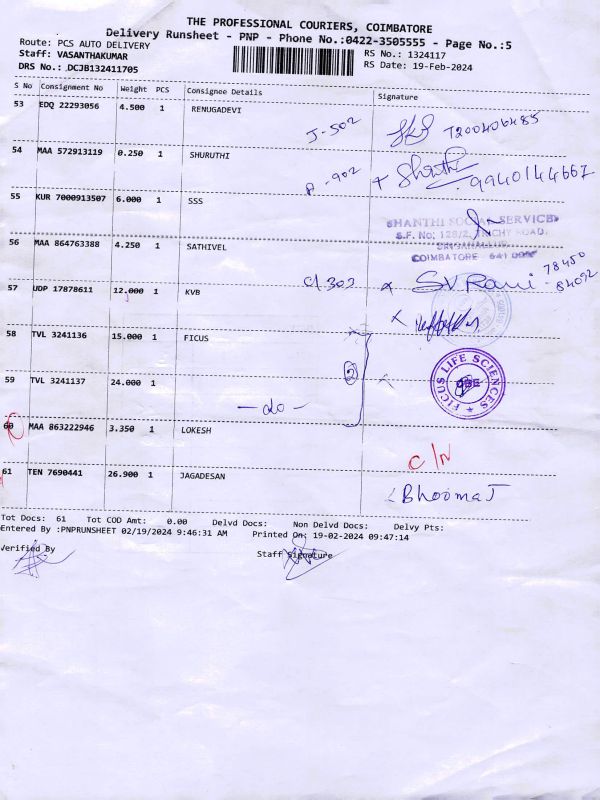 THE PROFESSIONAL COURIERS, COIMBATORE
Delivery Runsheet - PNP - Phone No.:0422-3505555 - Page No.:5
Route: PCS AUTO DELIVERY
Staff: VASANTHAKUMAR
DRS No.: DCJB132411705
RS No.: 1324117
RS Date: 19-Feb-2024
S No Consignment No Weight PCS Consignee Details Signature
53 EDQ 22293056 4.500 1 RENUGADEVI
J-502 7200406485
54 MAA 572913119 0.250 1 SHURUTHI
-902 9940144667
55 KUR 7000913507 6.000 1 SSS
SHANTHI SOCIAL SERVICES
S.F. No: 128/2, TRICHY ROAD,
COIMBATORE
56 MAA 864763388 4.250 1 SATHIVEL
303 S.V.Rani 78450
84092
57 UDP 17878611 12.000 1 KVB
58 TVL 3241136 15.000 1 FICUS
2
FICUS LIFE SCIENCES
59 TVL 3241137 24.000 1
— do —
60 MAA 863222946 3.350 1 LOKESH
C/N
61 TEN 7690441 26.900 1 JAGADESAN
Bhooma J
Tot Docs: 61 Tot COD Amt: 0.00 Delvd Docs: Non Delvd Docs: Delvy Pts:
Entered By :PNPRUNSHEET 02/19/2024 9:46:31 AM Printed On: 19-02-2024 09:47:14
Verified By Staff Signature